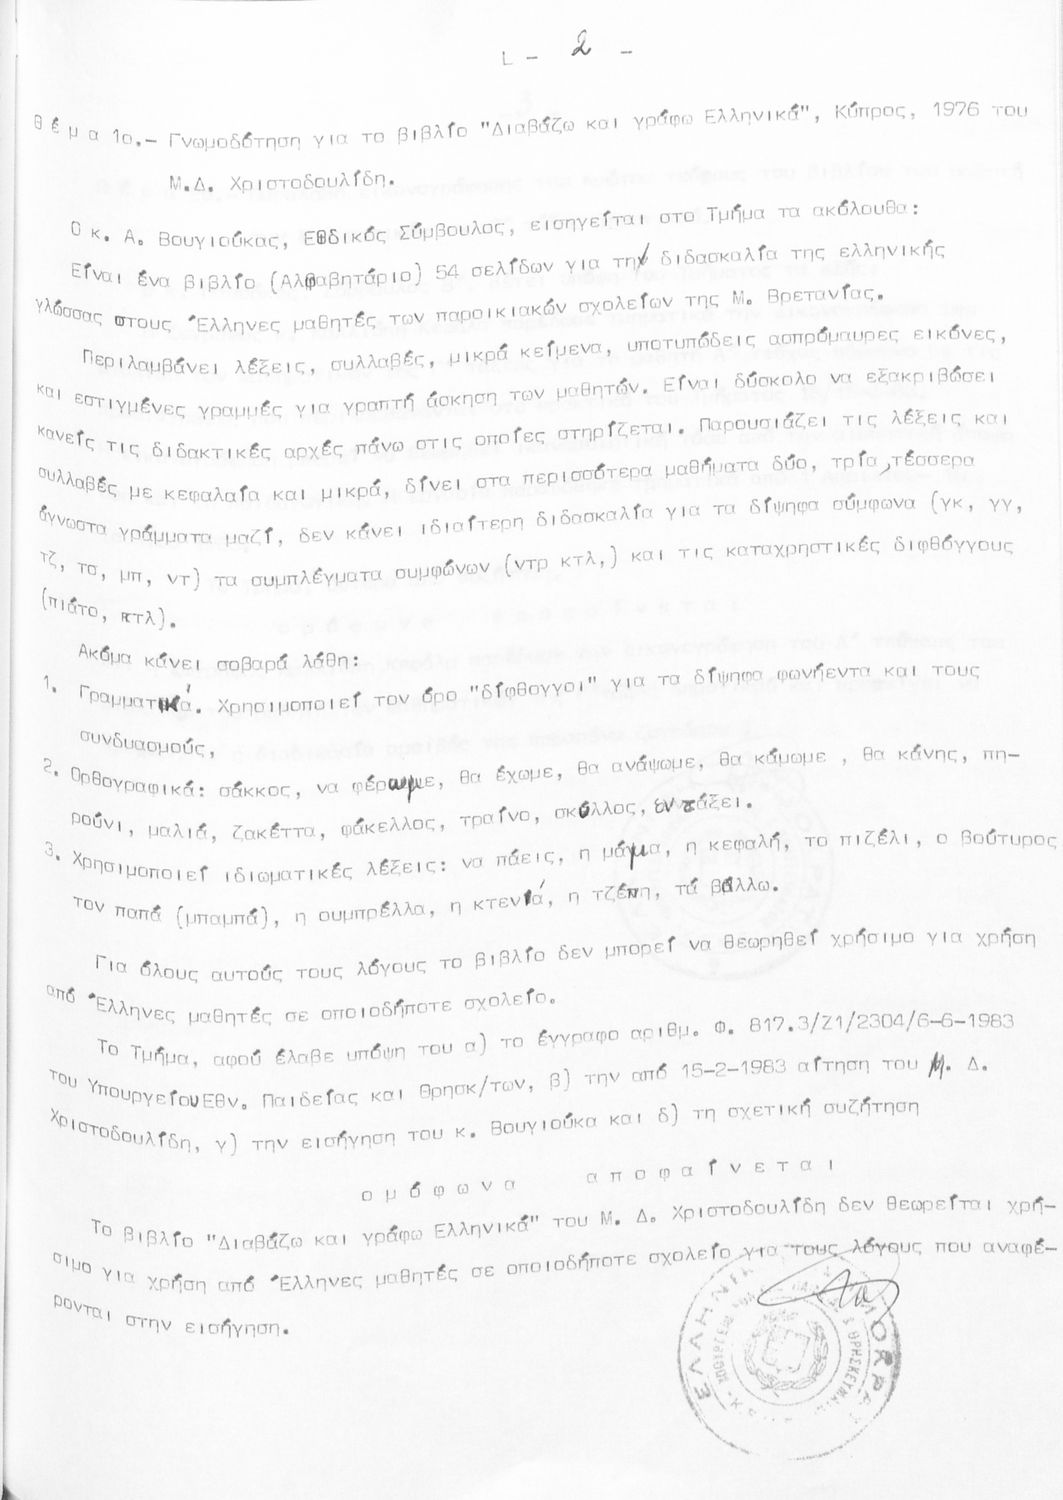 - 2 -
Θ έ μ α 1ο.- Γνωμοδότηση για το βιβλίο "Διαβάζω και γράφω Ελληνικά", Κύπρος, 1976 του
Μ.Δ. Χριστοδουλίδη.
Ο κ. Α. Βουγιούκας, Ειδικός Σύμβουλος, εισηγείται στο Τμήμα τα ακόλουθα:
Είναι ένα βιβλίο (Αλφαβητάριο) 54 σελίδων για τη διδασκαλία της ελληνικής
γλώσσας στους Έλληνες μαθητές των παροικιακών σχολείων της Μ. Βρετανίας.
Περιλαμβάνει λέξεις, συλλαβές, μικρά κείμενα, υποτυπώδεις ασπρόμαυρες εικόνες,
και εστιγμένες γραμμές για γραπτή άσκηση των μαθητών. Είναι δύσκολο να εξακριβώσει
κανείς τις διδακτικές αρχές πάνω στις οποίες στηρίζεται. Παρουσιάζει τις λέξεις και
συλλαβές με κεφαλαία και μικρά, δίνει στα περισσότερα μαθήματα δύο, τρία, τέσσερα
άγνωστα γράμματα μαζί, δεν κάνει ιδιαίτερη διδασκαλία για τα δίψηφα σύμφωνα (γκ, γγ,
τζ, τσ, μπ, ντ) τα συμπλέγματα συμφώνων (ντρ κτλ,) και τις καταχρηστικές διφθόγγους
(πιάτο, κτλ).
Ακόμα κάνει σοβαρά λάθη:
1. Γραμματικά. Χρησιμοποιεί τον όρο "δίφθογγοι" για τα δίψηφα φωνήεντα και τους
συνδυασμούς,
2. Ορθογραφικά: σάκκος, να φέρωμε, θα έχωμε, θα ανάψωμε, θα κάμωμε , θα κάνης, πη-
ρούνι, μαλιά, ζακέττα, φάκελλος, τραίνο, σκύλλος, εν τάξει.
3. Χρησιμοποιεί ιδιωματικές λέξεις: να πάεις, η μάμα, η κεφαλή, το πιζέλι, ο βούτυρος
τον παπά (μπαμπά), η ουμπρέλλα, η κτενιά, η τζέπη, τα βάλλω.
Για όλους αυτούς τους λόγους το βιβλίο δεν μπορεί να θεωρηθεί χρήσιμο για χρήση
από Έλληνες μαθητές σε οποιοδήποτε σχολείο.
Το Τμήμα, αφού έλαβε υπόψη του α) το έγγραφο αριθμ. Φ. 817.3/Ζ1/2304/6-6-1983
του Υπουργείου Εθν. Παιδείας και Θρησκ/των, β) την από 15-2-1983 αίτηση του Μ. Δ.
Χριστοδουλίδη, γ) την εισήγηση του κ. Βουγιούκα και δ) τη σχετική συζήτηση
ο μ ό φ ω ν α α π ο φ α ί ν ε τ α ι
Το βιβλίο "Διαβάζω και γράφω Ελληνικά" του Μ. Δ. Χριστοδουλίδη δεν θεωρείται χρή-
σιμο για χρήση από Έλληνες μαθητές σε οποιοδήποτε σχολείο για τους λόγους που αναφέ-
ρονται στην εισήγηση.